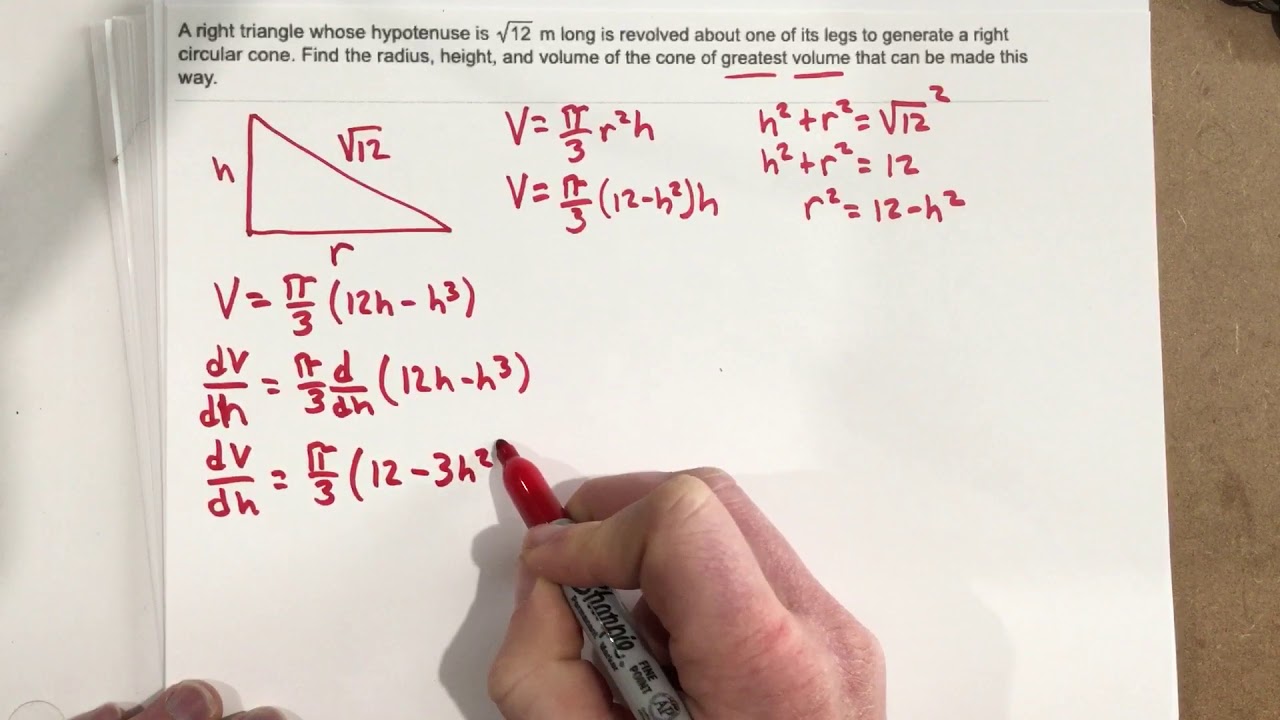 A right triangle whose hypotenuse is √12 m long is revolved about one of its legs to generate a right
circular cone. Find the radius, height, and volume of the cone of greatest volume that can be made this
way.
h
√12
r
V = π/3 r²h
V = π/3 (12-h²)h
h² + r² = √12²
h² + r² = 12
r² = 12 - h²
V = π/3 (12h - h³)
dV/dh = π/3 d/dh (12h - h³)
dV/dh = π/3 (12 - 3h²
Sharpie
FINE
POINT
AP